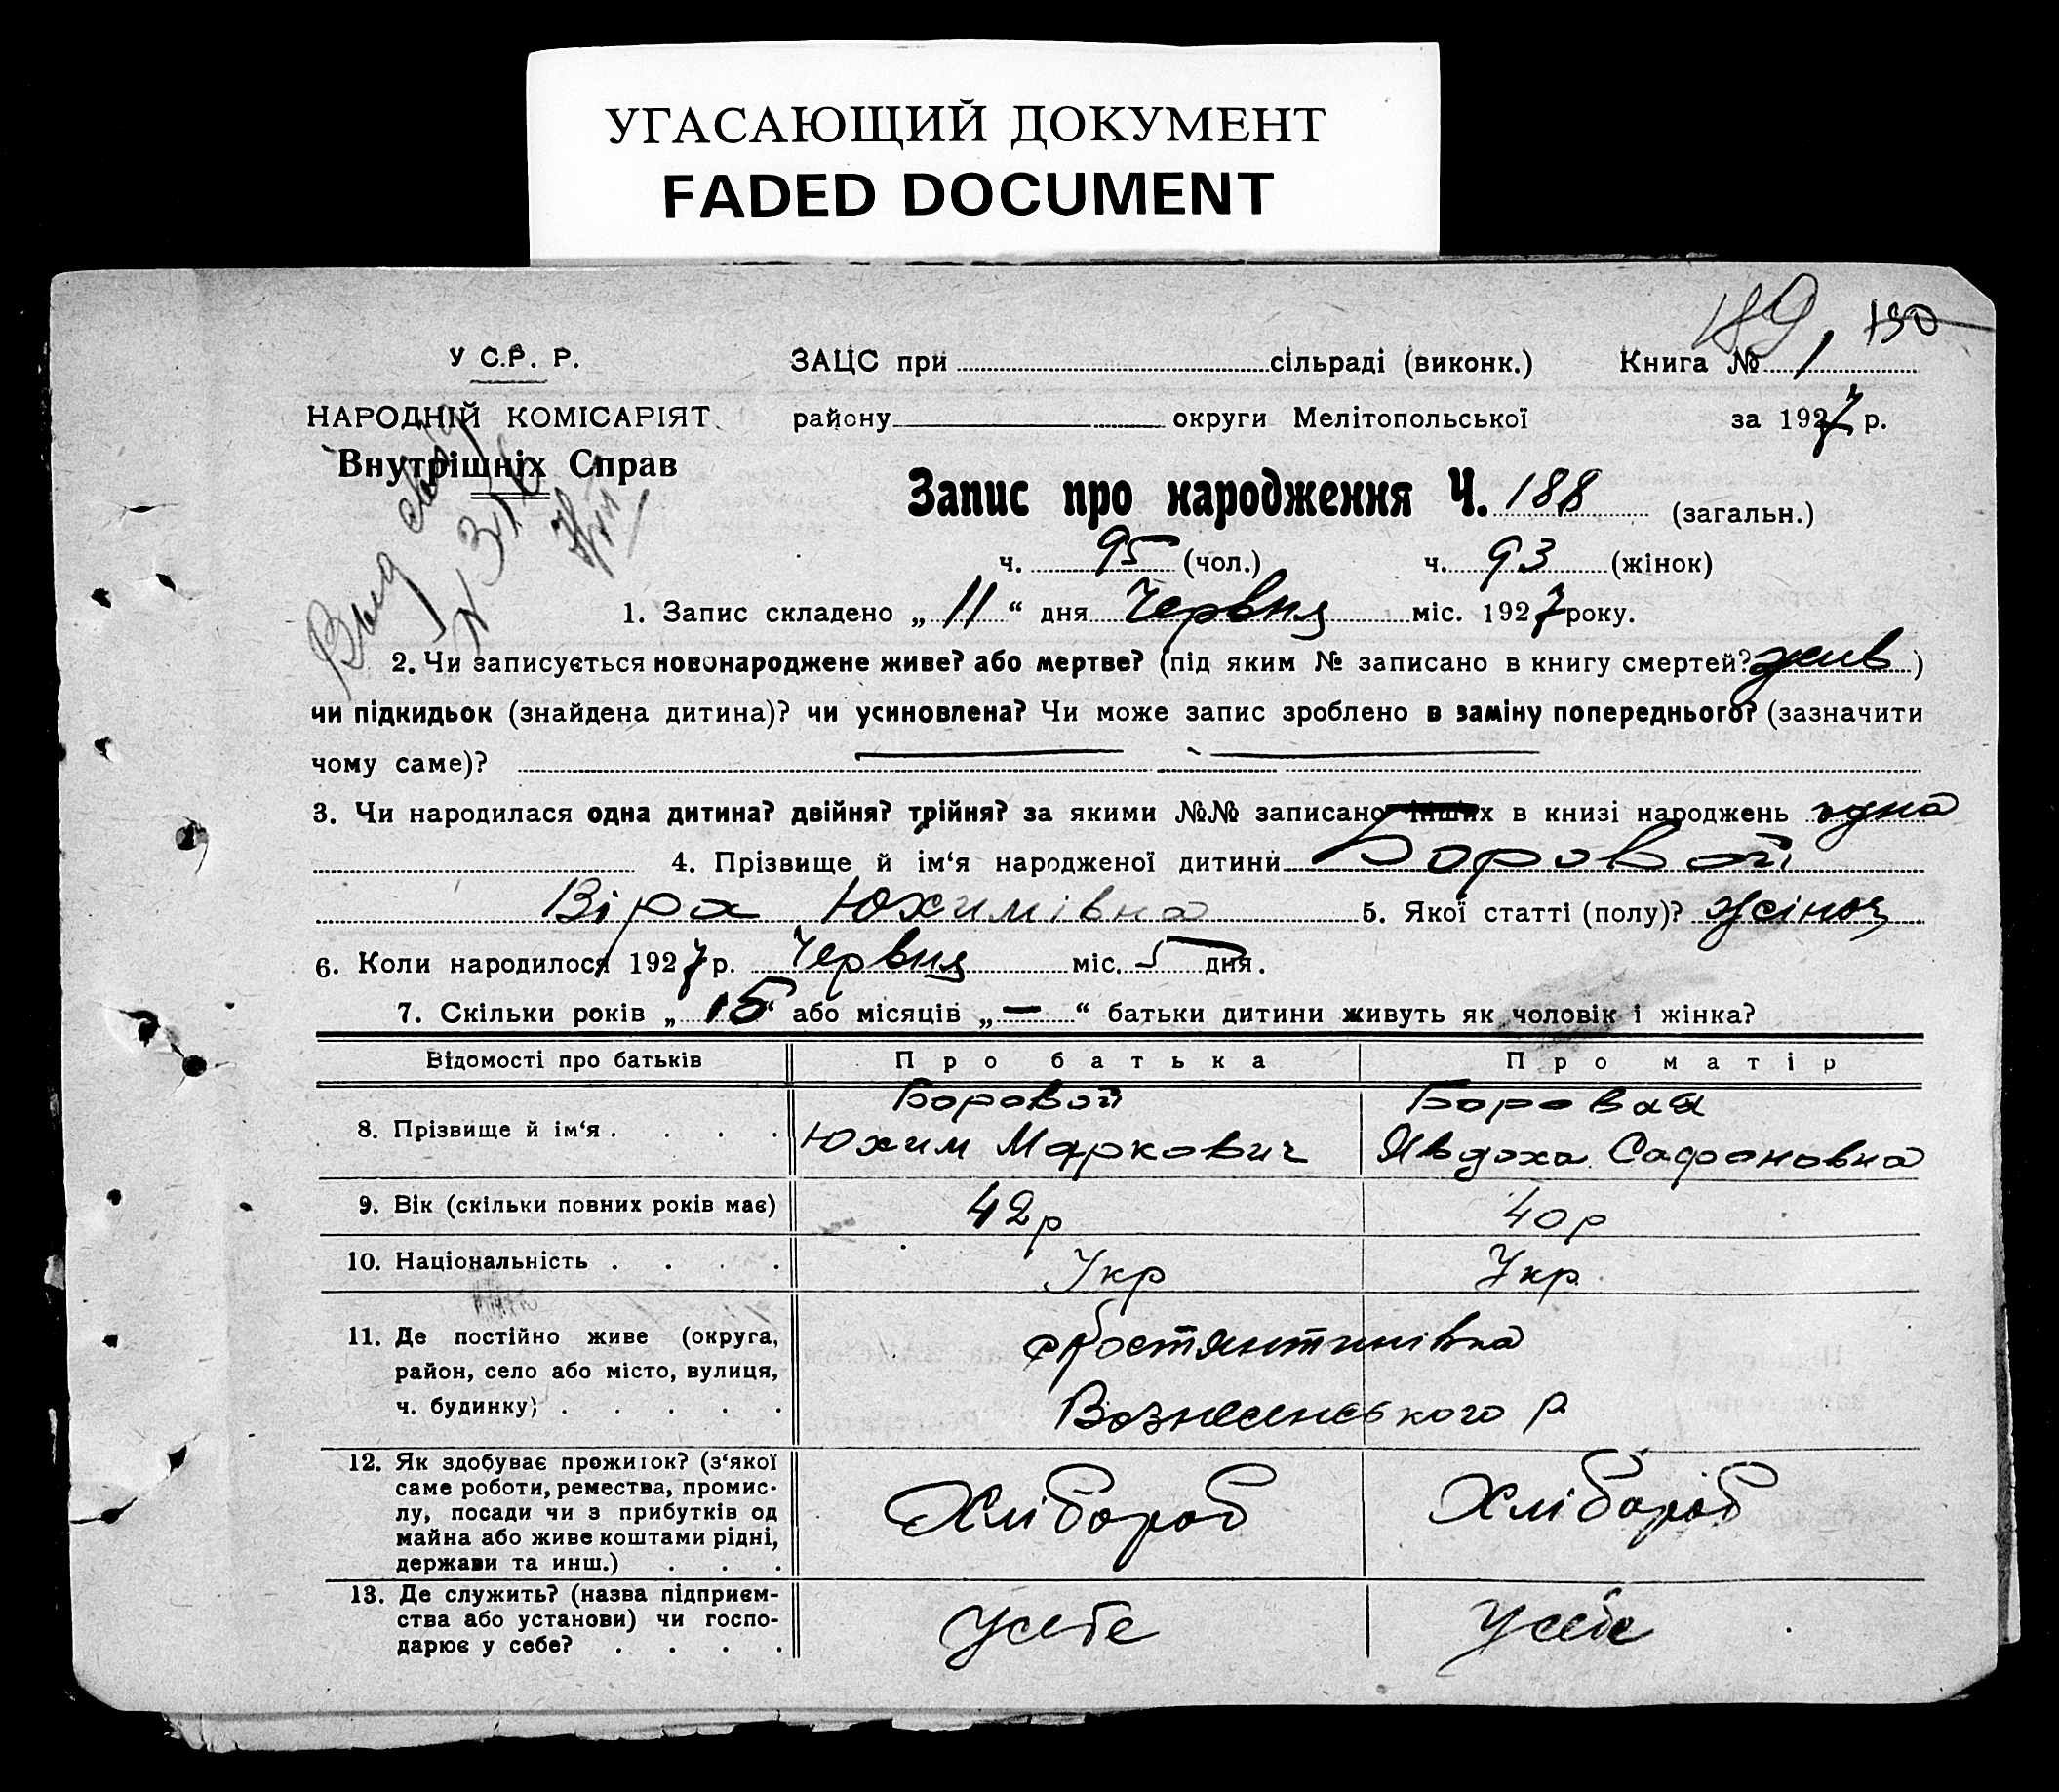 УГАСАЮЩИЙ ДОКУМЕНТ
FADED DOCUMENT
189, 190
У С.Р. Р. ЗАЦС при сільраді (виконк.) Книга № 1
НАРОДНІЙ КОМІСАРІЯТ району округи Мелітопольської за 1927 р.
Внутрішніх Справ
Запис про народження Ч. 188 (загальн.)
ч. 95 (чол.) ч. 93 (жінок)
1. Запис складено „ 11 “ дня Червня міс. 1927 року.
2. Чи записується новонароджене живе? або мертве? (під яким № записано в книгу смертей? жив)
чи підкидьок (знайдена дитина)? чи усиновлена? Чи може запис зроблено в заміну попереднього? (зазначити
чому саме)?
3. Чи народилася одна дитина? двійня? трійня? за якими №№ записано інших в книзі народжень одна
4. Прізвище й ім‘я народженої дитини Боровой
Віра Юхимівна 5. Якої статті (полу)? жіноч
6. Коли народилося 1927 р. Червня міс. 5 дня.
7. Скільки років „ 15 “ або місяців „ — “ батьки дитини живуть як чоловік і жінка?
Відомості про батьків Про батька Про матір
8. Прізвище й ім‘я . . . . Боровой Боровая
Юхим Маркович Явдоха Сафоновна
9. Вік (скільки повних років має) 42 р 40 р
10. Національність . . . . Укр Укр.
11. Де постійно живе (округа, с Костянтинівка
район, село або місто, вулиця,
ч. будинку) . . . . . Вознесенського р.
12. Як здобуває прожиток? (з‘якої
саме роботи, ремества, промис-
лу, посади чи з прибутків од Хлібороб Хлібороб
майна або живе коштами рідні,
держави та инш.) . . .
13. Де служить? (назва підприєм-
ства або установи) чи госпо- У себе У себе
дарює у себе? . . . .